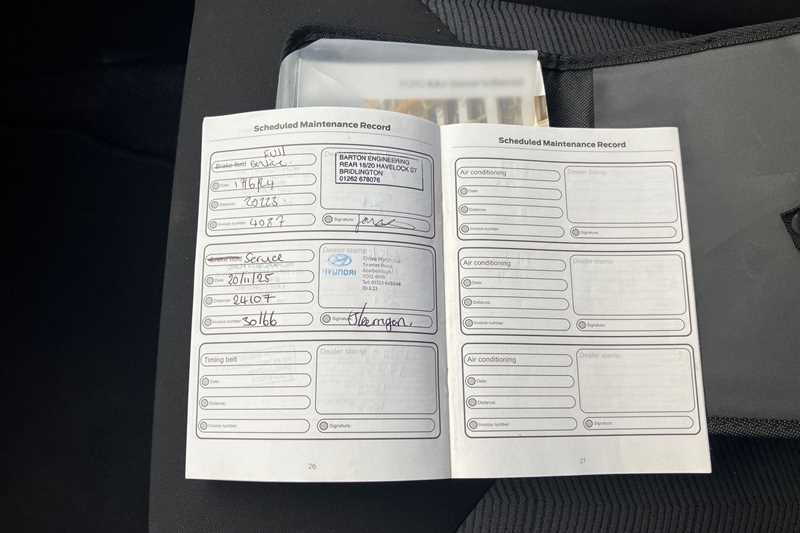 Scheduled Maintenance Record
Full
Brake fluid Service.
Date: 17/6/24
Distance: 20223
Invoice number: 4087
Dealer stamp
BARTON ENGINEERING
REAR 18/20 HAVELOCK ST
BRIDLINGTON
01262 678076
Signature:
Service
Date: 20/11/25
Distance: 24107
Invoice number: 30166
Dealer stamp
HYUNDAI
Scarborough
Signature:
Timing belt
Date:
Distance:
Invoice number:
Dealer stamp
Signature:
26
Scheduled Maintenance Record
Air conditioning
Date:
Distance:
Invoice number:
Dealer stamp
Signature:
Air conditioning
Date:
Distance:
Invoice number:
Dealer stamp
Signature:
Air conditioning
Date:
Distance:
Invoice number:
Dealer stamp
Signature:
27